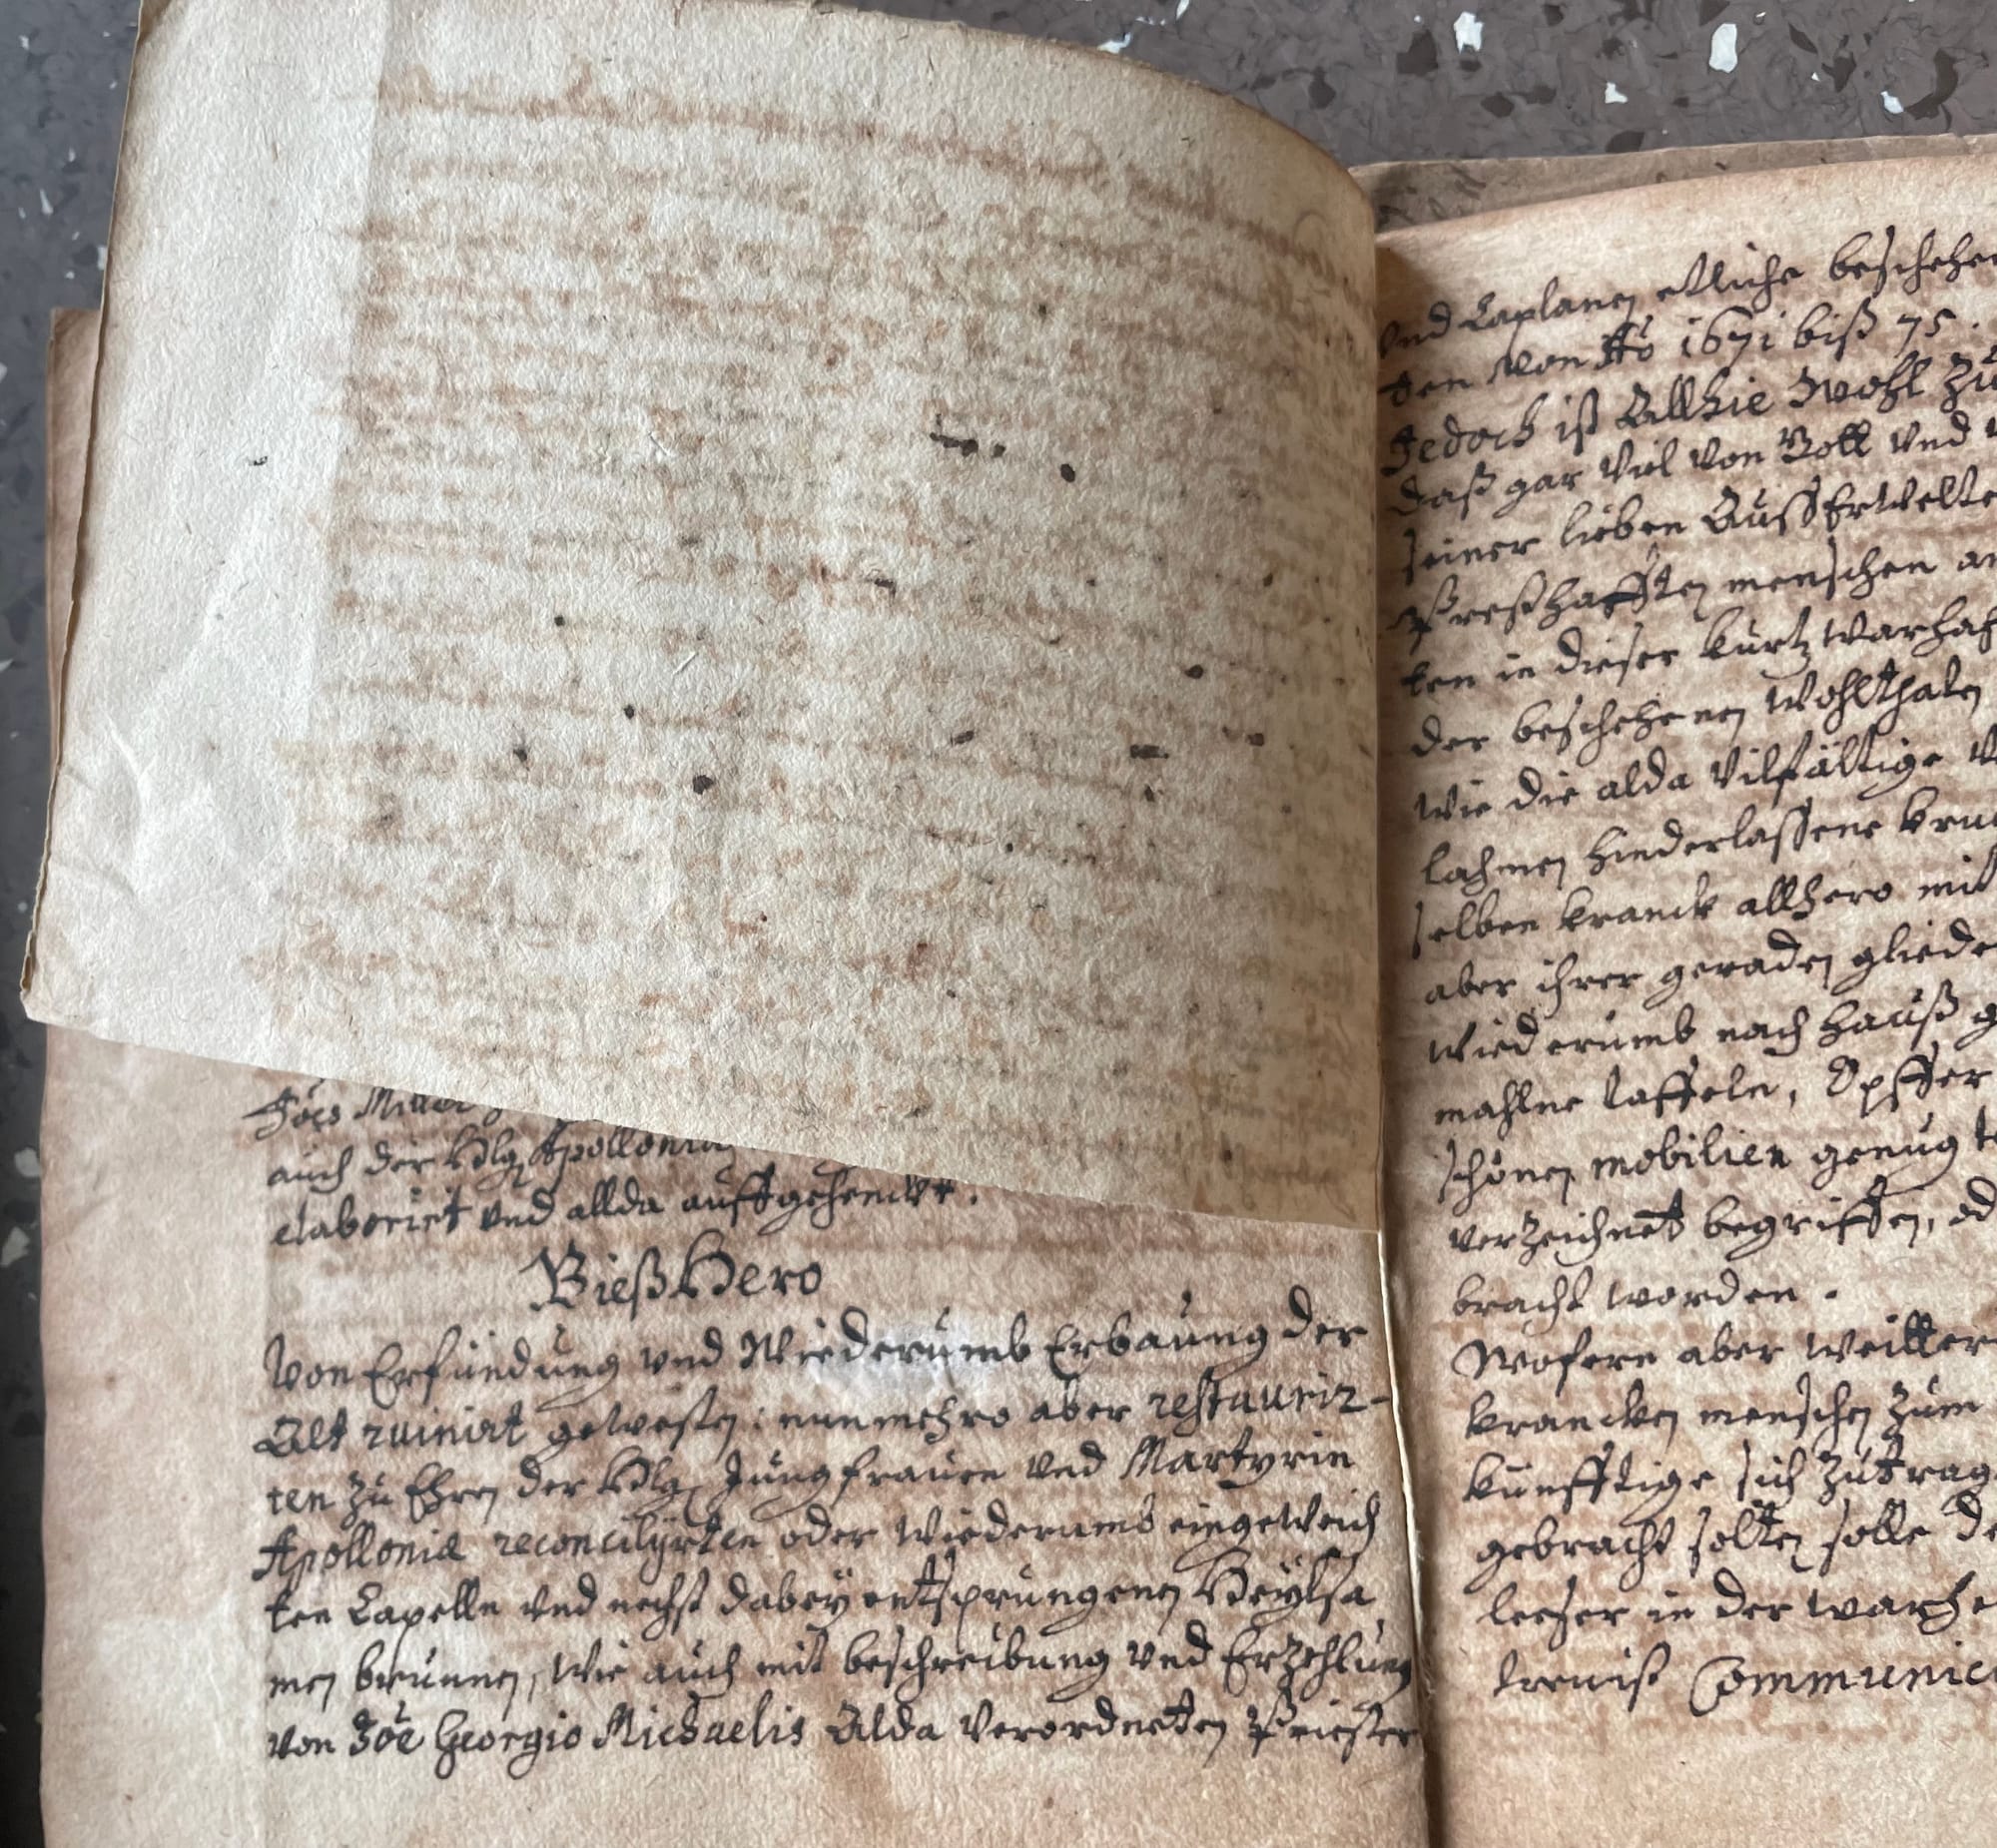 auch der Hlg Apollonia
elaborirt vnd allda auffgehenckt.
Bießhero
von Erfündung vnd Wiederumb Erbauung der
Alt ruinirt gewesten: nunmehro aber restaurir-
ten zu Ehren der Hlg Jungfrauen vnd Martyrin
Apolloniæ reconcilÿrten oder wiederumb eingeweich
ten Capelle vnd nechst dabeÿ entsprungenen Heÿlsa
men brunnen, wie auch mit beschreibung vnd Erzehlung
von Joe Georgio Michaelis Alda verordneten Priester
vnd Caplanen etliche beschehen
ten von Ao 1671 biß 75.
Jedoch ist Allhie Wohl Zu
daß gar viel von Gott vnd
seiner lieben AussErwelte
Pressthafften menschen an
ten in dieser kurtz warhaf
der beschehenen wohlthaten
wie die alda vilfältige
lahmen hinderlassene kruc
selben kranck allhero mit
aber ihrer geraden gliede
wiederumb nach hauß g
mahlne taffeln, Opffer
schönen mobilien genug
verzeichnet begriffen, od
bracht worden.
Wofern aber weitter
krancken menschen zum
künfftige sich zutrag
gebracht solten solle de
leeser in der warhe
treniß Communic